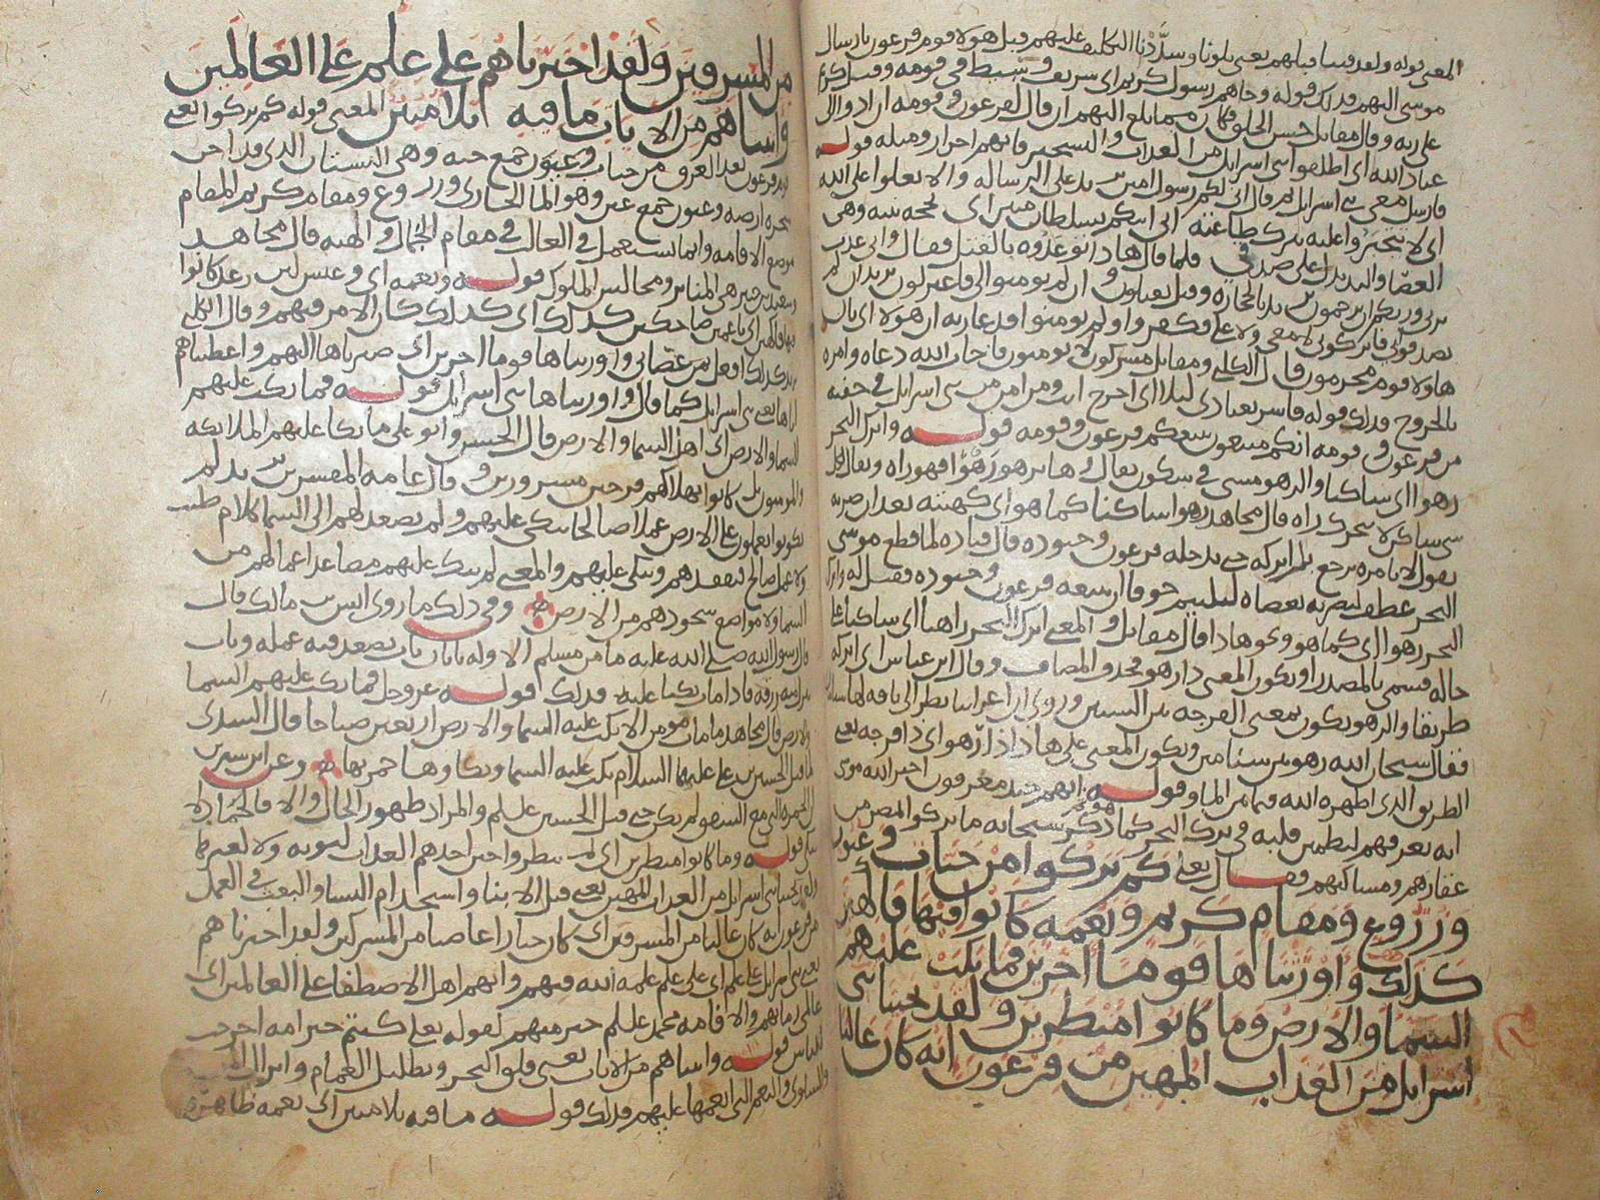 المعنى قوله ولقد فتنا قبلهم يعني بلونا وشددنا التكليف عليهم قبل هولا قوم فرعون بارسال
موسى اليهم فذلك قوله وجاهم رسول كريم اي شريف وسيط في قومه وقيل كريم
على ربه وقال مقاتل حسن الخلق فكان مما بلغ اليهم ان قال لفرعون وقومه ان ادوا الي
عباد الله اي اطلقوا بني اسرايل من العذاب والتسخير فانهم احرار ومثله قوله
فارسل معي بني اسرايل ثم قال اني لكم رسول امين يدل على الرسالة وان لا تعلوا على الله
اي لا تتجبروا عليه بترك طاعته اني اتيكم بسلطان مبين اي بحجه بينه وهي
العصا واليد يدل على صدقي فلما قال هذا توعدوه بالقتل فقال واني عذت
بربي وربكم ان ترجمون يريد بالحجارة وقيل تقتلون وان لم تومنوا لي فاعتزلون يريد ان لم
تصدقوني فاتركوني لا معي ولا علي فكفروا ولم يومنوا فدعا ربه ان هولاء اي بان
هاولا قوم مجرمون قال الكلبي ومقاتل مشركون لا يومنون فاجاب الله دعاه وامره
بالخروج فذلك قوله فاسر بعبادي ليلا اي اخرج انت ومن امن من بني اسرايل في خفيه
من فرعون وقومه انكم متبعون يتبعكم فرعون وقومه قوله واترك البحر
رهوا اي ساكنا والرهو مشي في سكون يقال جاءت هذه رهوا فهو راه ويقال لكل
شي ساكن لا يتحرك راه قال مجاهد رهوا ساكنا كما هو اي كهيئته بعد ان ضربه
يقول لا تامره يرجع بل اتركه حتى يدخله فرعون وجنوده قال قتاده لما قطع موسى
البحر عطف ليضربه بعصاه ليلتيم خوفا ان يتبعه فرعون وجنوده فقيل له واترك
البحر رهوا اي كما هو وعلى هذا قال مقاتل والمعنى اترك البحر راهيا اي ساكنا على
حاله فسمي بالمصدر او يكون المعنى ذا رهو فحذف المضاف وقال ابن عباس اي اتركه
طريقا والرهو يكون بمعنى الفرجه بين الشيئين وروي ان اعرابيا نظر الى ناقه لها سنامان
فقال سبحان الله رهو بين سنامين ويكون المعنى على هذا ذا رهو اي ذا فرجه يعني
الطريق الذي اظهره الله فيما بين الماء وقوله انهم جند مغرقون اخبر الله موسى
انه يغرقهم ليطمئن قلبه في ترك البحر كما هو ثم ذكر سبحانه ما تركوا بمصر من
عقارهم ومساكنهم فقال تعالى كم تركوا من جنات وعيون
وزروع ومقام كريم ونعمه كانوا فيها فاكهين
كذلك واورثناها قوما اخرين فما بكت عليهم
السماء والارض وما كانوا منظرين ولقد نجينا بني
اسرايل من العذاب المهين من فرعون انه كان عاليا
من المسرفين ولقد اخترناهم على علم على العالمين
واتيناهم من الايات ما فيه بلاء مبين المعنى قوله كم تركوا يعني
قوم فرعون بعد الغرق من جنات وعيون جمع جنه وهي البستان الذي قد اجن
شجره ارضه وعيون جمع عين وهو الماء الجاري وزروع ومقام كريم المقام
موضع الاقامه وانما يستعمل في الغالب في مقام الجمال والهيه قال مجاهد
وسعيد بن جبير هي المنابر ومجالس الملوك قوله ونعمه اي وعيش لين رغد كانوا
فيها فاكهين اي ناعمين ضاحكين كذلك اي كذلك كان الامر فيهم وقال الكلبي
كذلك افعل بمن عصاني واورثناها قوما اخرين اي صيرناها اليهم واعطيناهم
اياها يعني بني اسرايل كما قال واورثناها بني اسرايل قوله فما بكت عليهم
السماء والارض اي اهل السماء والارض قال الحسن وابو علي ما بكا عليهم الملايكه
والمومنون بل كانوا بهلاكهم فرحين مسرورين وقال عامه المفسرين يريد لم
يكونوا يعملون على الارض عملا صالحا تبكي عليهم ولم يصعد لهم الى السماء كلام طيب
ولا عمل صالح فتفقدهم وتبكي عليهم والمعنى لم تبك عليهم مصاعد اعمالهم من
السماء ولا مواضع سجودهم من الارض وفي ذلك ما روى انس بن مالك قال
قال رسول الله صلى الله عليه ما من مسلم الا وله بابان باب يصعد فيه عمله وباب
ينزل منه رزقه فاذا مات بكيا عليه فذلك قوله عز وجل فما بكت عليهم السماء
والارض قال مجاهد ما مات مومن الا بكت عليه السماء والارض اربعين صباحا قال السدي
لما قتل الحسين بن علي عليهما السلام بكت عليه السماء وبكاوها حمرتها وعن ابن سيرين
ان الحمره التي مع الشفق لم تكن حتى قتل الحسين عليلم والمراد ظهور الحال والا فالجماد لا
يبكي قوله وما كانوا منظرين اي لم ينظروا حين اخذهم العذاب لتوبه ولا لغيرها
ولقد نجينا بني اسرايل من العذاب المهين يعني قتل الابناء واستخدام النساء والتعب في العمل
من فرعون انه كان عاليا من المسرفين اي كان جبارا عاصيا من المشركين ولقد اخترناهم
يعني بني اسرايل على علم اي على علم علمه الله فيهم وانهم اهل الاصطفاء على العالمين اي
عالمي زمانهم والا فامه محمد عليلم خير منهم كقوله تعالى كنتم خير امه اخرجت
للناس قوله واتيناهم من الايات يعني فلق البحر وتظليل الغمام وانزال المن
والسلوى والنعم التي انعمها عليهم فذلك قوله ما فيه بلاء مبين اي نعمه ظاهره